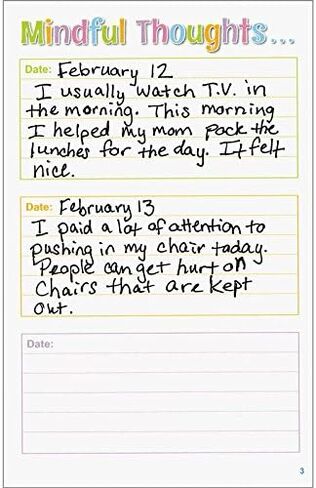 Mindful Thoughts...
Date: February 12
I usually watch T.V. in
the morning. This morning
I helped my mom pack the
lunches for the day. It felt
nice.
Date: February 13
I paid a lot of attention to
pushing in my chair today.
People can get hurt on
Chairs that are kept
out.
Date:
3